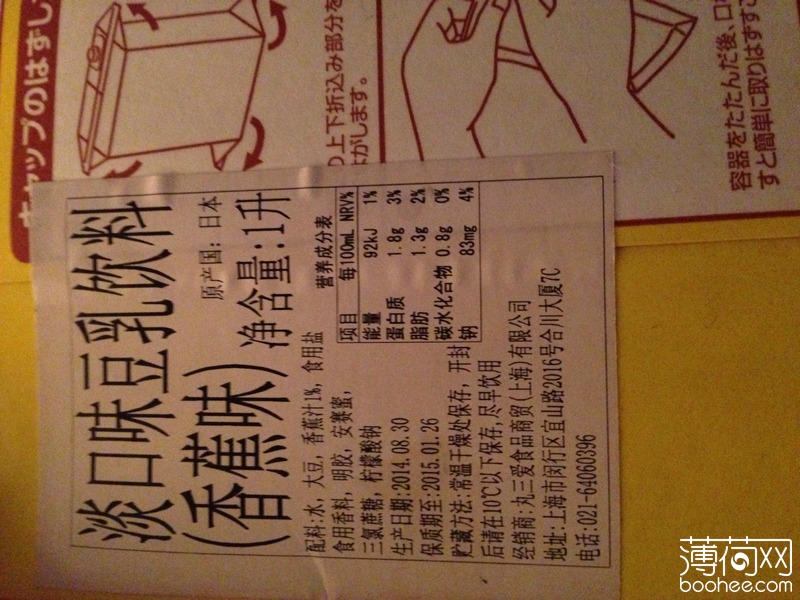 キャップのはずし
り上下折込み部分を
がします。
容器をたたんだ後、口
すと簡単に取りはずす
淡口味豆乳饮料
(香蕉味)
原产国: 日本
净含量:1升
配料:水, 大豆, 香蕉汁1%, 食用盐
食用香料, 明胶, 安赛蜜,
三氯蔗糖, 柠檬酸钠
生产日期:2014.08.30
保质期至:2015.01.26
贮藏方法:常温干燥处保存, 开封
后请在10℃以下保存,尽早饮用
经销商:丸三爱食品商贸(上海)有限公司
地址:上海市闵行区宜山路2016号合川大厦7C
电话:021-64060396
营养成分表
项目 每100mL NRV%
能量 92kJ 1%
蛋白质 1.8g 3%
脂肪 1.3g 2%
碳水化合物 0.8g 0%
钠 83mg 4%
薄荷网
boohee.com